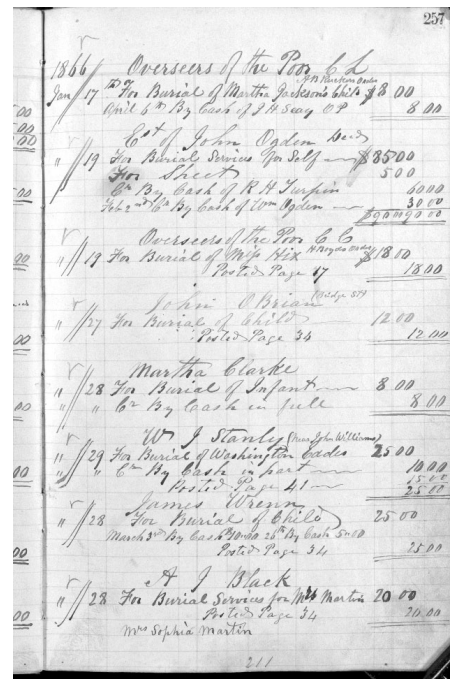 257
1866 Overseers of the Poor C L
A B Ruckers Order
Jan 17 th For Burial of Martha Jackson's Child $8 00
April 6th By Cash of J H Seay O P 8 00
Est of John Ogden Decd
" 19 For Burial Services for Self $85 00
For Sheet 5 00
Cr By Cash of R H Turpin 60 00
Feb 2nd Cr By Cash of Wm Ogden 30 00
$90 00 90 00
Overseers of the Poor C C
H Boyds Order
" 19 For Burial of Miss Hix $18 00
Posted Page 17 18 00
John O Brian (Bridge St)
" 27 For Burial of Child 12 00
Posted Page 34 12 00
Martha Clarke
" 28 For Burial of Infant 8 00
" " Cr By Cash in full 8 00
W J Stanly (Mrs John Williams)
" 29 For Burial of Washington Eades 25 00
" " Cr By Cash in part 10 00
Posted Page 41 15 00
25 00
James Wrenn
" 28 For Burial of Child 25 00
March 3rd By Cash 26th By Cash 5 00
Posted Page 34 25 00
A J Black
" 28 For Burial Services for Martin 20 00
Posted Page 34 20 00
Mrs Sophia Martin
211